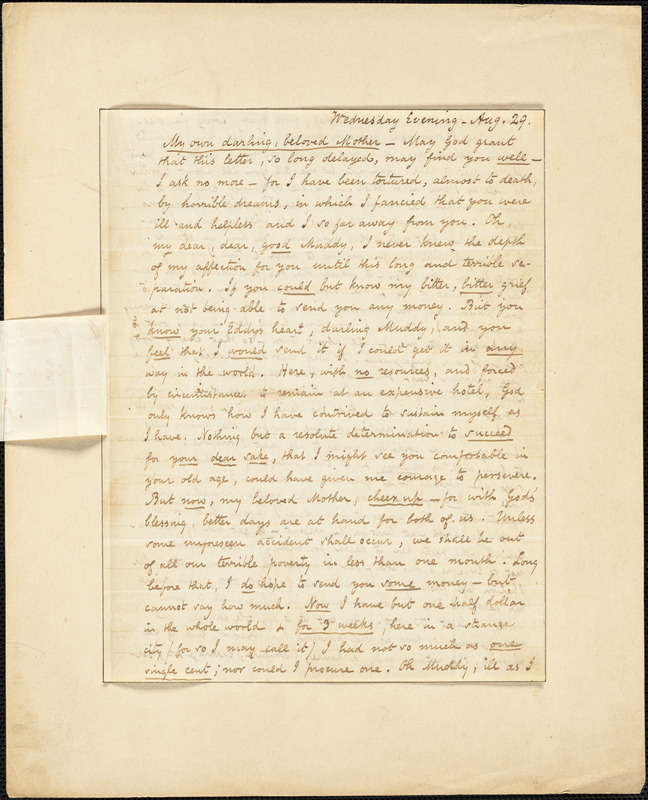 Wednesday Evening - Aug. 29.
My own darling, beloved Mother — May God grant
that this letter, so long delayed, may find you well —
I ask no more — for I have been tortured, almost to death,
by horrible dreams, in which I fancied that you were
ill and helpless and I so far away from you. Oh,
my dear, dear, good Muddy, I never knew the depth
of my affection for you until this long and terrible se-
paration. If you could but know my bitter, bitter grief
at not being able to send you any money. But you
know your Eddy's heart, darling Muddy, and you
feel that I would send it if I could get it in any
way in the world. Here, with no resources, and forced
by circumstance to remain at an expensive hotel, God
only knows how I have contrived to sustain myself as
I have. Nothing but a resolute determination to succeed
for your dear sake, that I might see you comfortable in
your old age, could have given me courage to persevere.
But now, my beloved Mother, cheer up — for with God's
blessing, better days are at hand for both of us. Unless
some unforeseen accident shall occur, we shall be out
of all our terrible poverty in less than one month. Long
before that, I do hope to send you some money — but
cannot say how much. Now I have but one half dollar
in the whole world & for 3 weeks, here in a strange
city (for so I may call it) I had not so much as one
single cent; nor could I procure one. Oh Muddy, ill as I